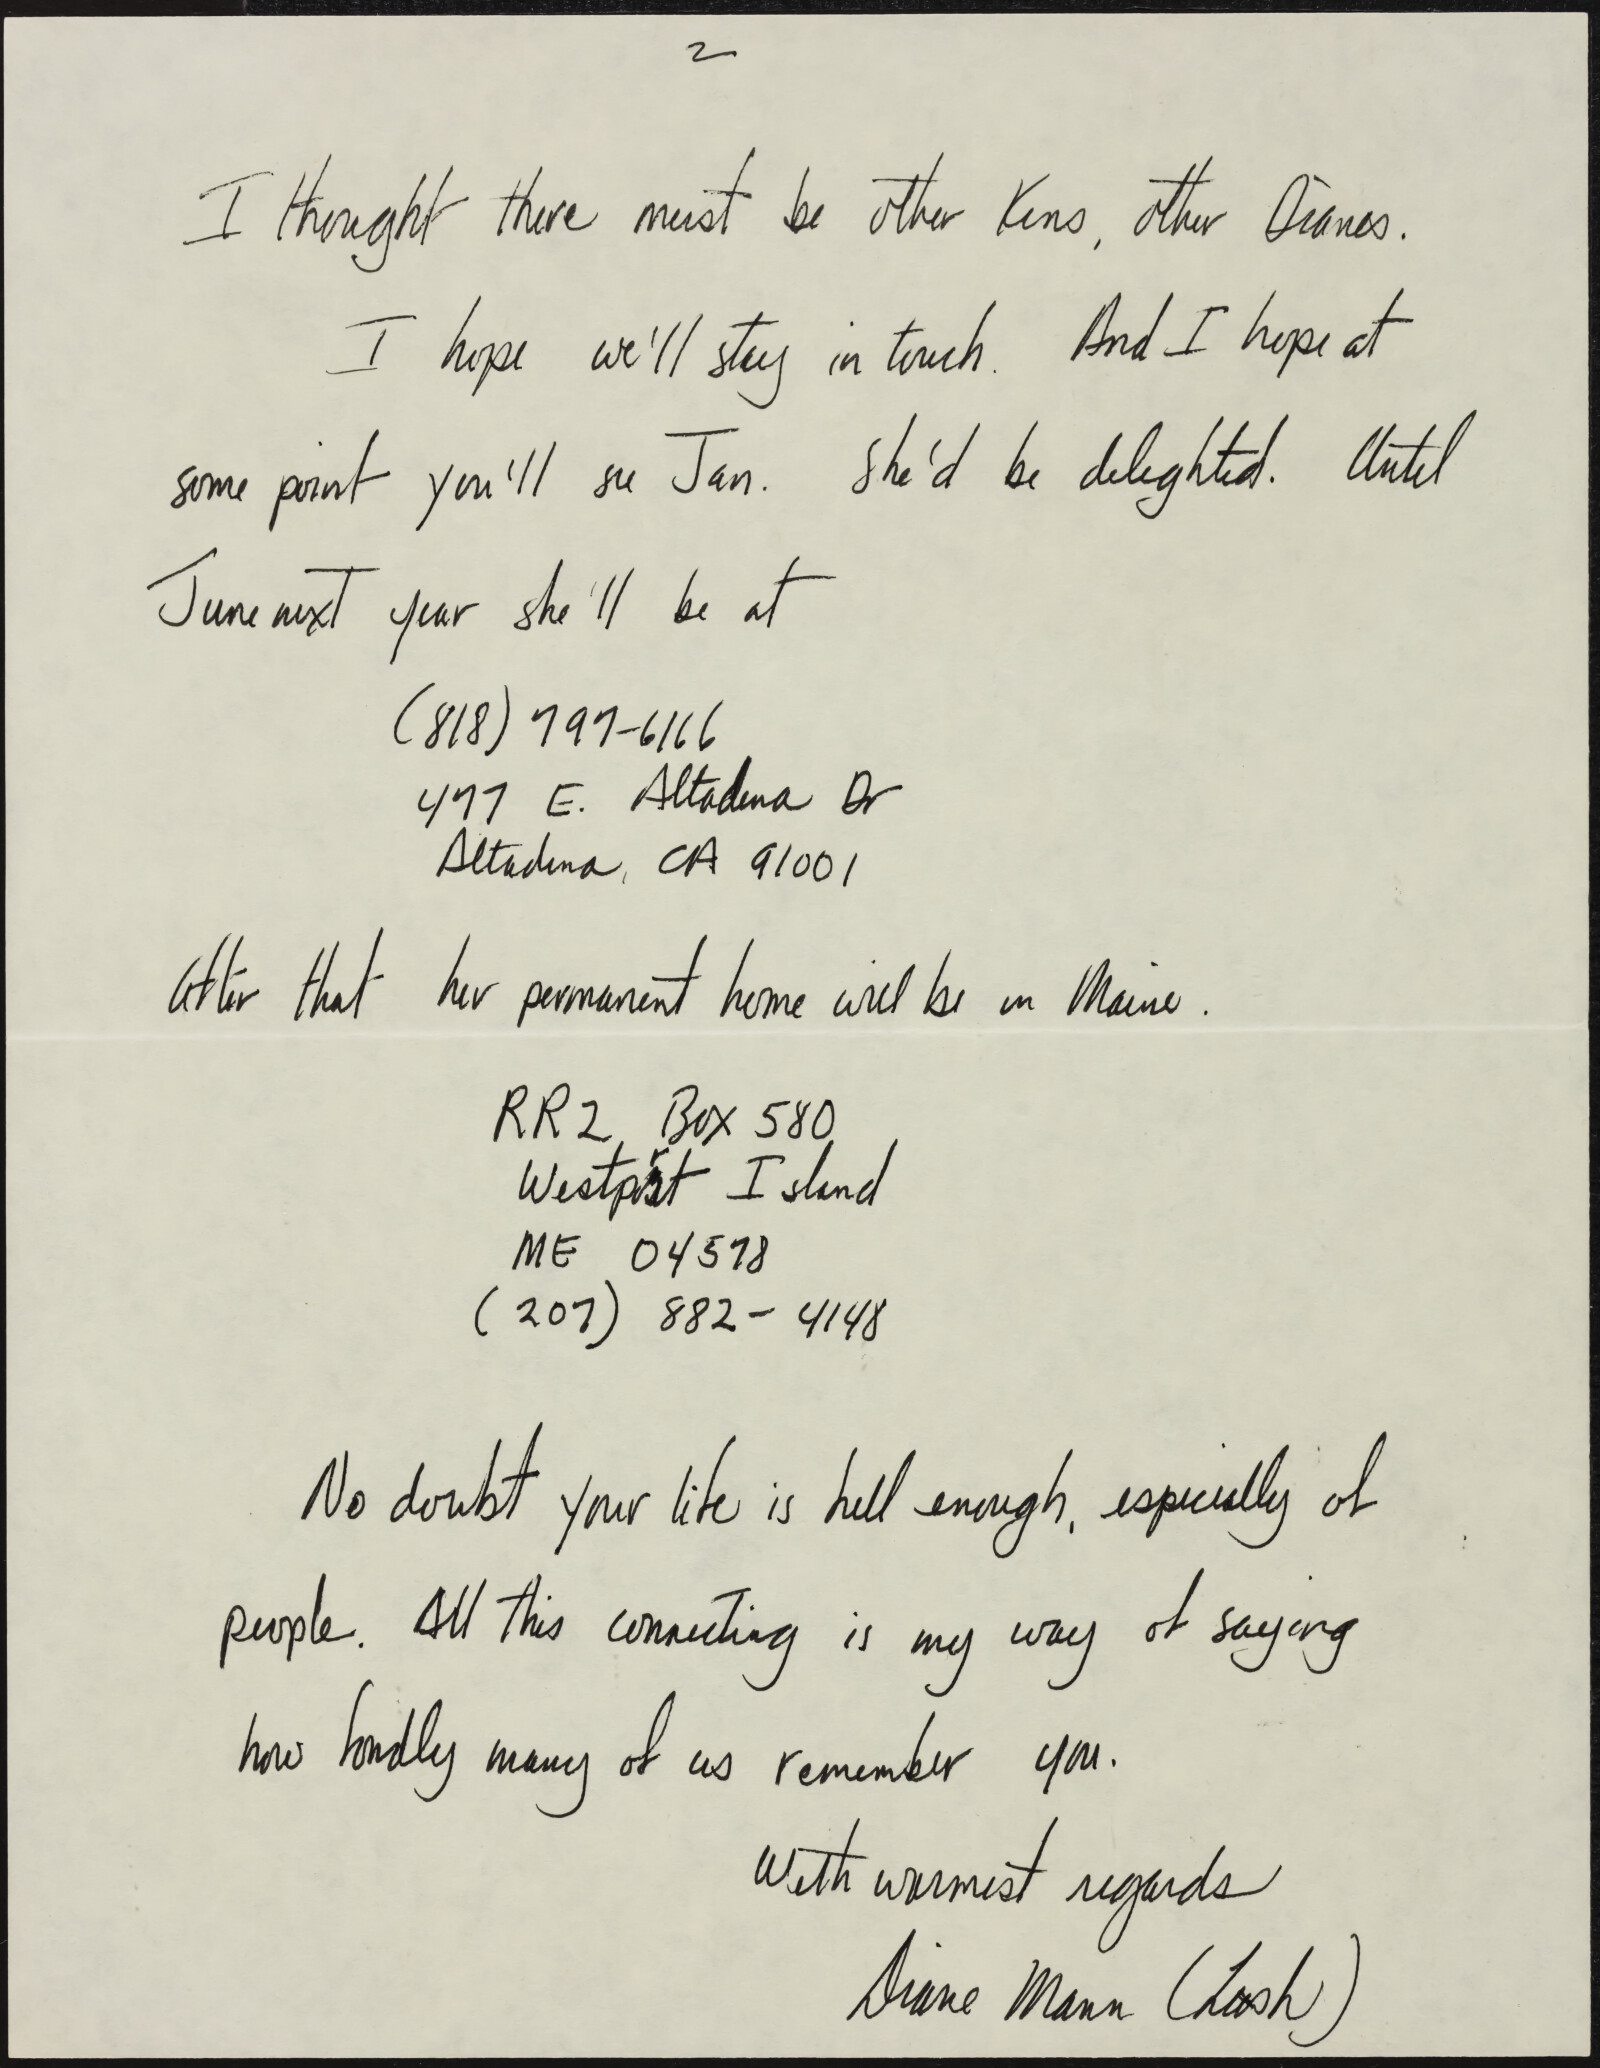 2
I thought there must be other Kens, other Dianes.
I hope we'll stay in touch. And I hope at
some point you'll see Jan. She'd be delighted. Until
June next year she'll be at
(818) 797-6166
477 E. Altadena Dr
Altadena, CA 91001
After that her permanent home will be in Maine.
RR2, Box 580
Westport Island
ME 04578
(207) 882-4148
No doubt your life is full enough, especially of
people. All this connecting is my way of saying
how fondly many of us remember you.
With warmest regards
Diane Mann (Lash)